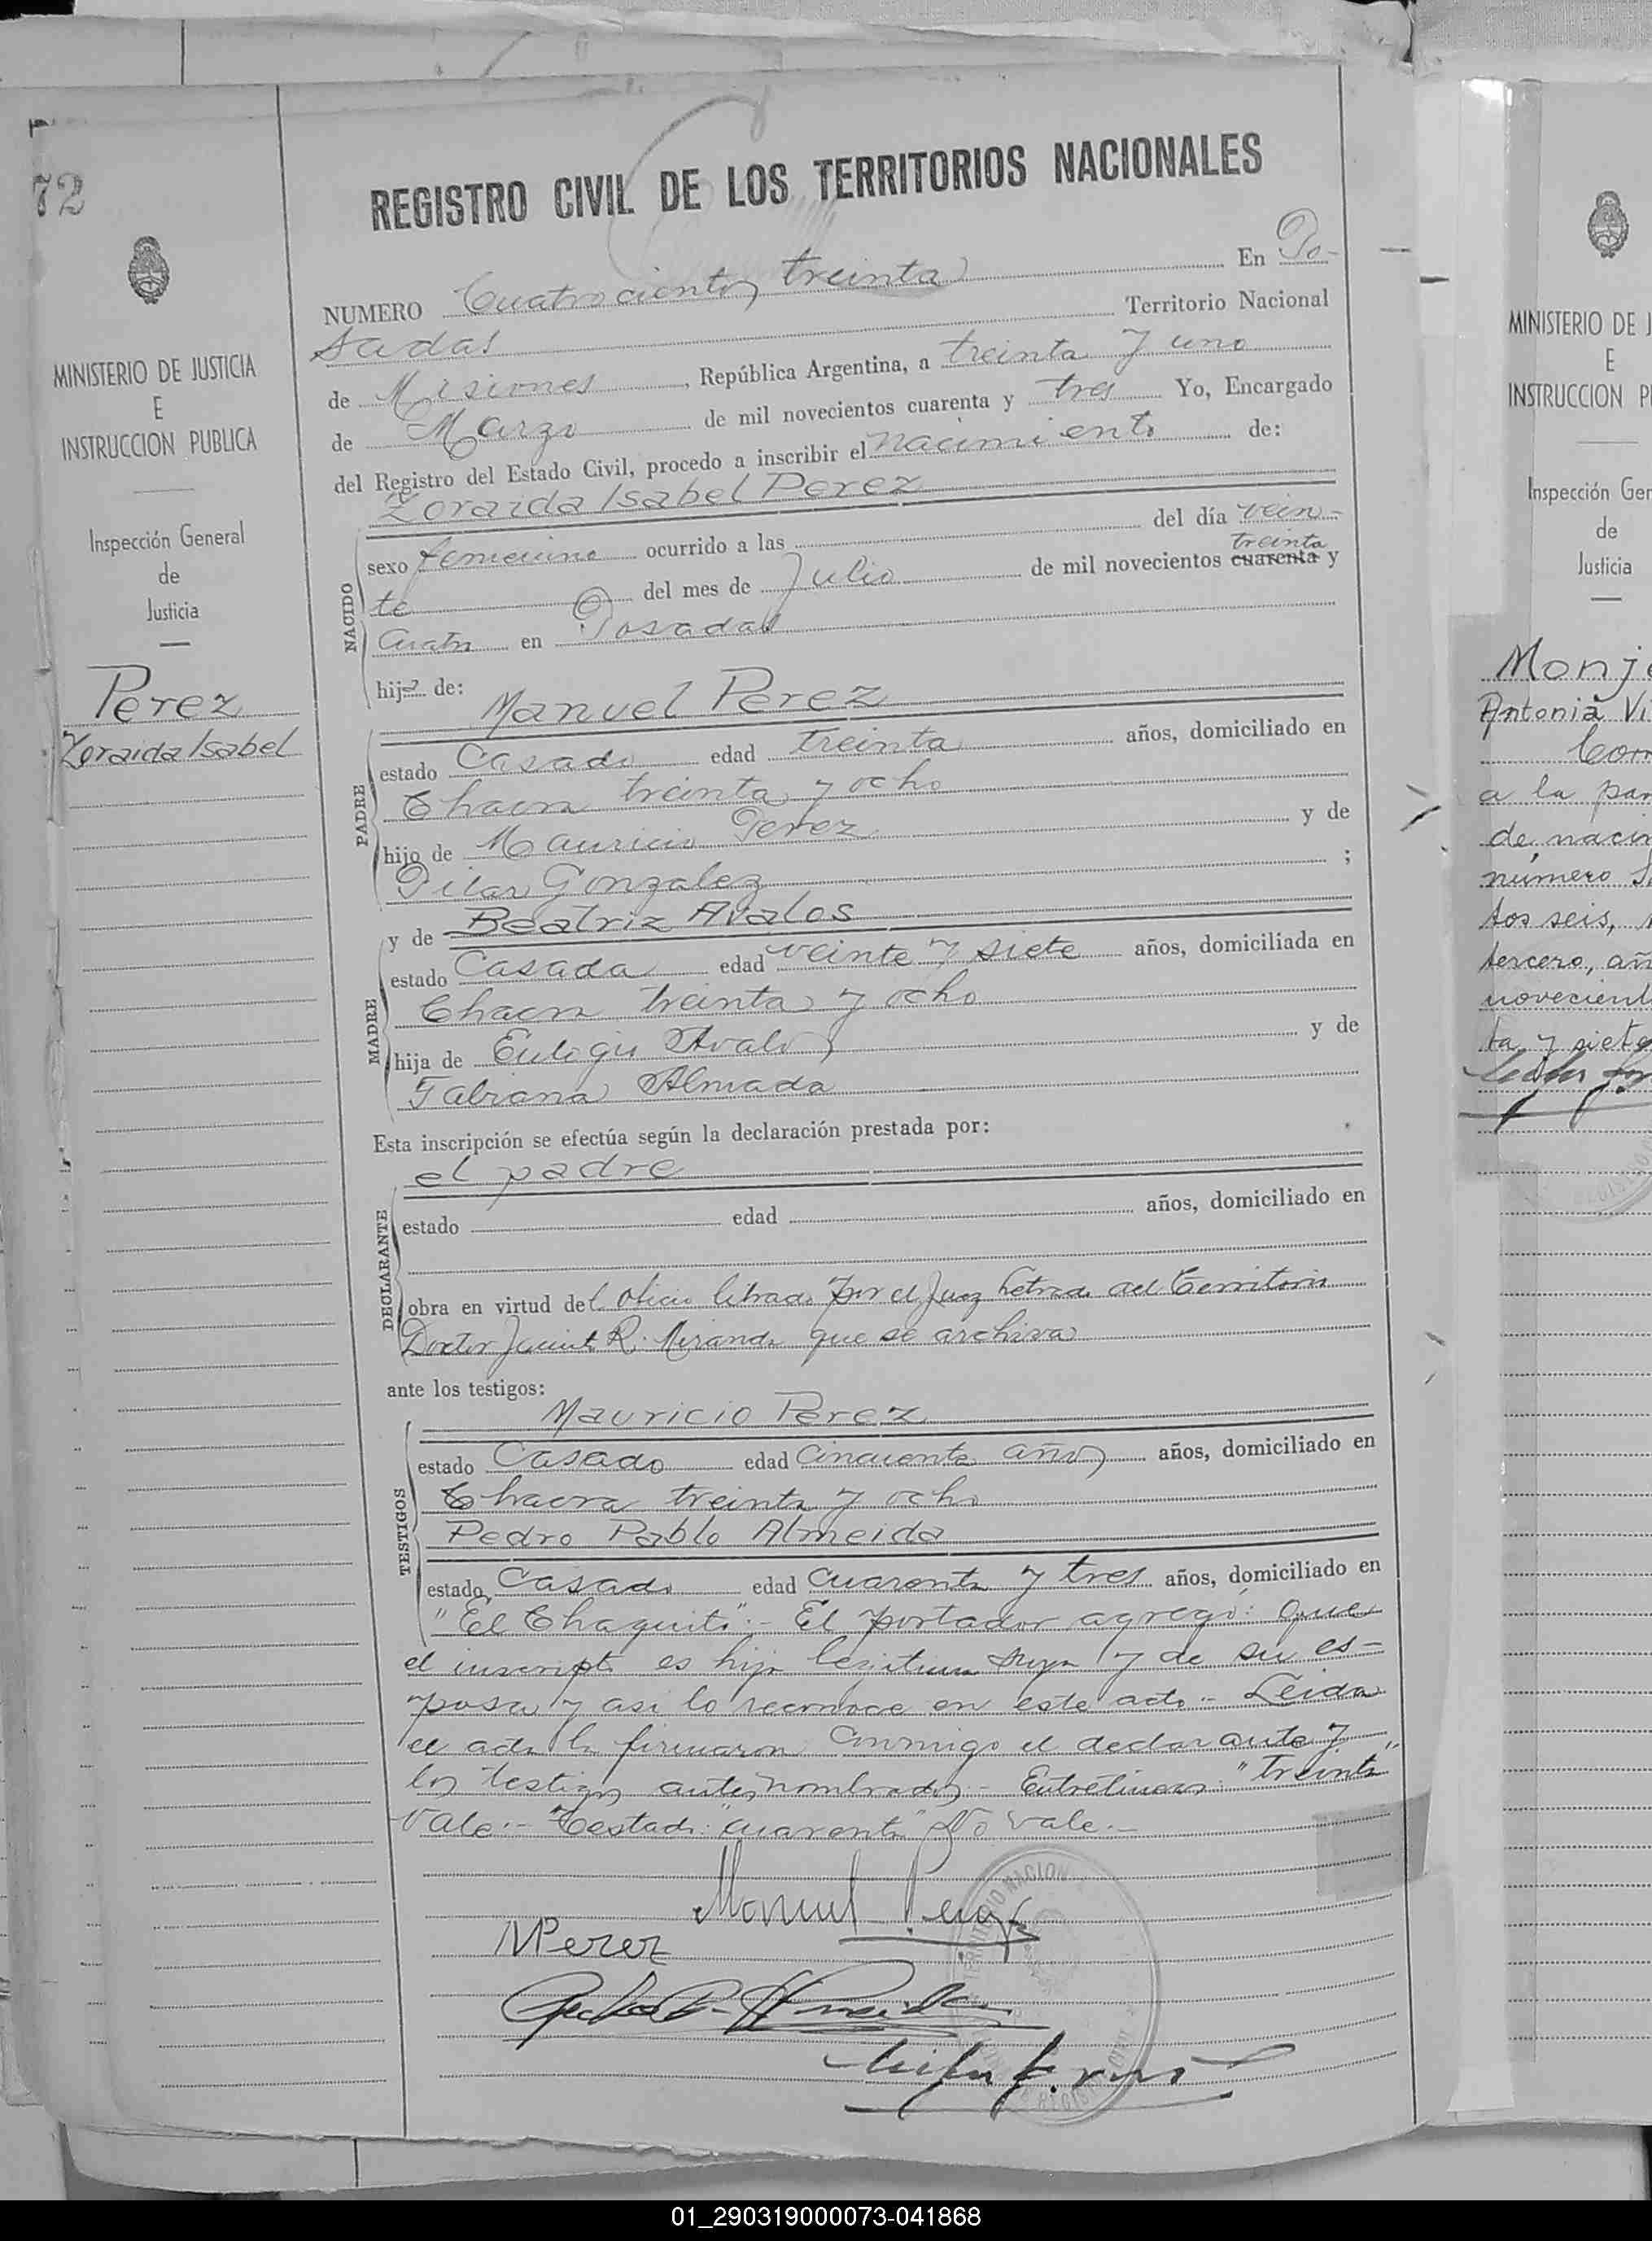 72
MINISTERIO DE JUSTICIA
E
INSTRUCCION PUBLICA
Inspección General
de
Justicia
Perez
Zoraida Isabel
REGISTRO CIVIL DE LOS TERRITORIOS NACIONALES
NUMERO Cuatrocientos treinta En Po-
sadas Territorio Nacional
de Misiones, República Argentina, a treinta y uno
de Marzo de mil novecientos cuarenta y tres Yo, Encargado
del Registro del Estado Civil, procedo a inscribir el nacimiento de:
Zoraida Isabel Perez
NACIDO
sexo femenino ocurrido a las del día vein-
treinta
te del mes de Julio de mil novecientos cuarenta y
cuatro en Posadas
hija de:
Manuel Perez
PADRE
estado Casado edad treinta años, domiciliado en
Chacra treinta y ocho
hijo de Mauricio Perez y de
Pilar Gonzalez ;
y de Beatriz Avalos
MADRE
estado Casada edad veinte y siete años, domiciliada en
Chacra treinta y ocho
hija de Eulogio Avalos y de
Fabiana Almada
Esta inscripción se efectúa según la declaración prestada por:
el padre
DECLARANTE
estado edad años, domiciliado en
obra en virtud del oficio librado por el Juez Letrado del Territorio
Doctor Jacinto R. Miranda que se archiva
ante los testigos:
Mauricio Perez
TESTIGOS
estado Casado edad Cincuenta años años, domiciliado en
Chacra treinta y ocho
Pedro Pablo Almeida
estado Casado edad Cuarenta y tres años, domiciliado en
"El Chaquito".- El portador agregó: Que
el inscripto es hijo legitimo suyo y de su es-
posa y asi lo reconoce en este acto.- Leida
el acta la firmaron conmigo el declarante y
los testigos antes nombrados.- Entrelineas: "treinta"
Vale.- Testado: "cuarenta" No vale.-
Manuel Perez
MPerez
MINISTERIO DE J
E
INSTRUCCION P
Inspección Gen
de
Justicia
Monje
Antonia Vi
a la par
de nacim
número S
tos seis,
tercero, añ
novecient
ta y siete
01_290319000073-041868